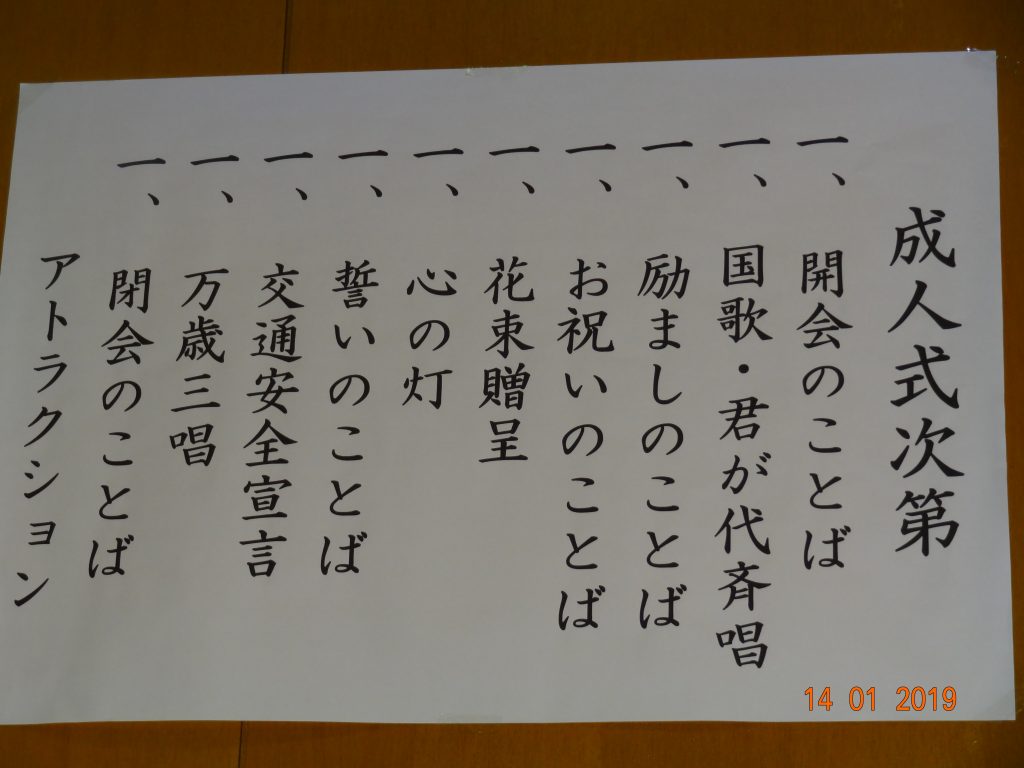 成人式次第
一、開会のことば
一、国歌・君が代斉唱
一、励ましのことば
一、お祝いのことば
一、花束贈呈
一、心の灯
一、誓いのことば
一、交通安全宣言
一、万歳三唱
一、閉会のことば
アトラクション
14 01 2019